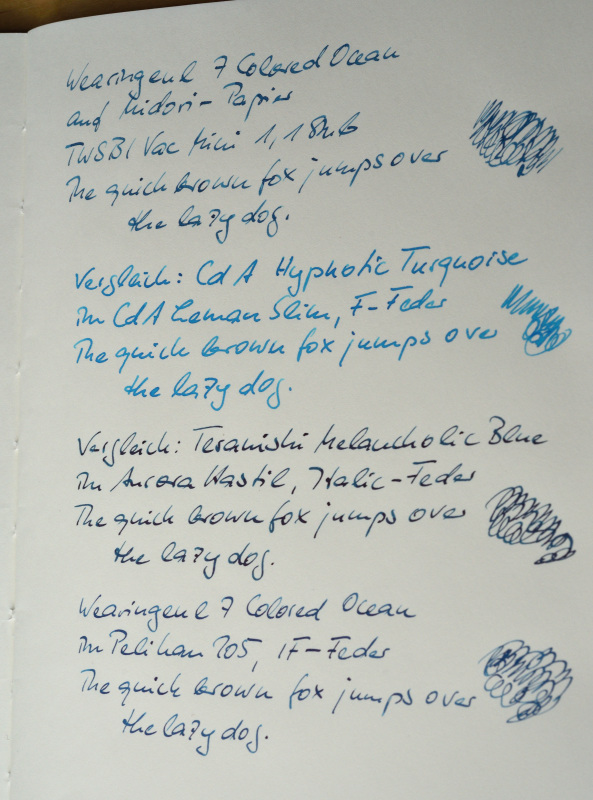 Wearingeul 7 Colored Ocean
auf Midori-Papier
TWSBI Vac Mini 1,1 Stub
The quick brown fox jumps over
the lazy dog.
Vergleich: CdA Hypnotic Turquoise
im CdA Leman Slim, F-Feder
The quick brown fox jumps over
the lazy dog.
Vergleich: Teranishi Melancholic Blue
im Aurora Hastil, Italic-Feder
The quick brown fox jumps over
the lazy dog.
Wearingeul 7 Colored Ocean
im Pelikan 205, IF-Feder
The quick brown fox jumps over
the lazy dog.